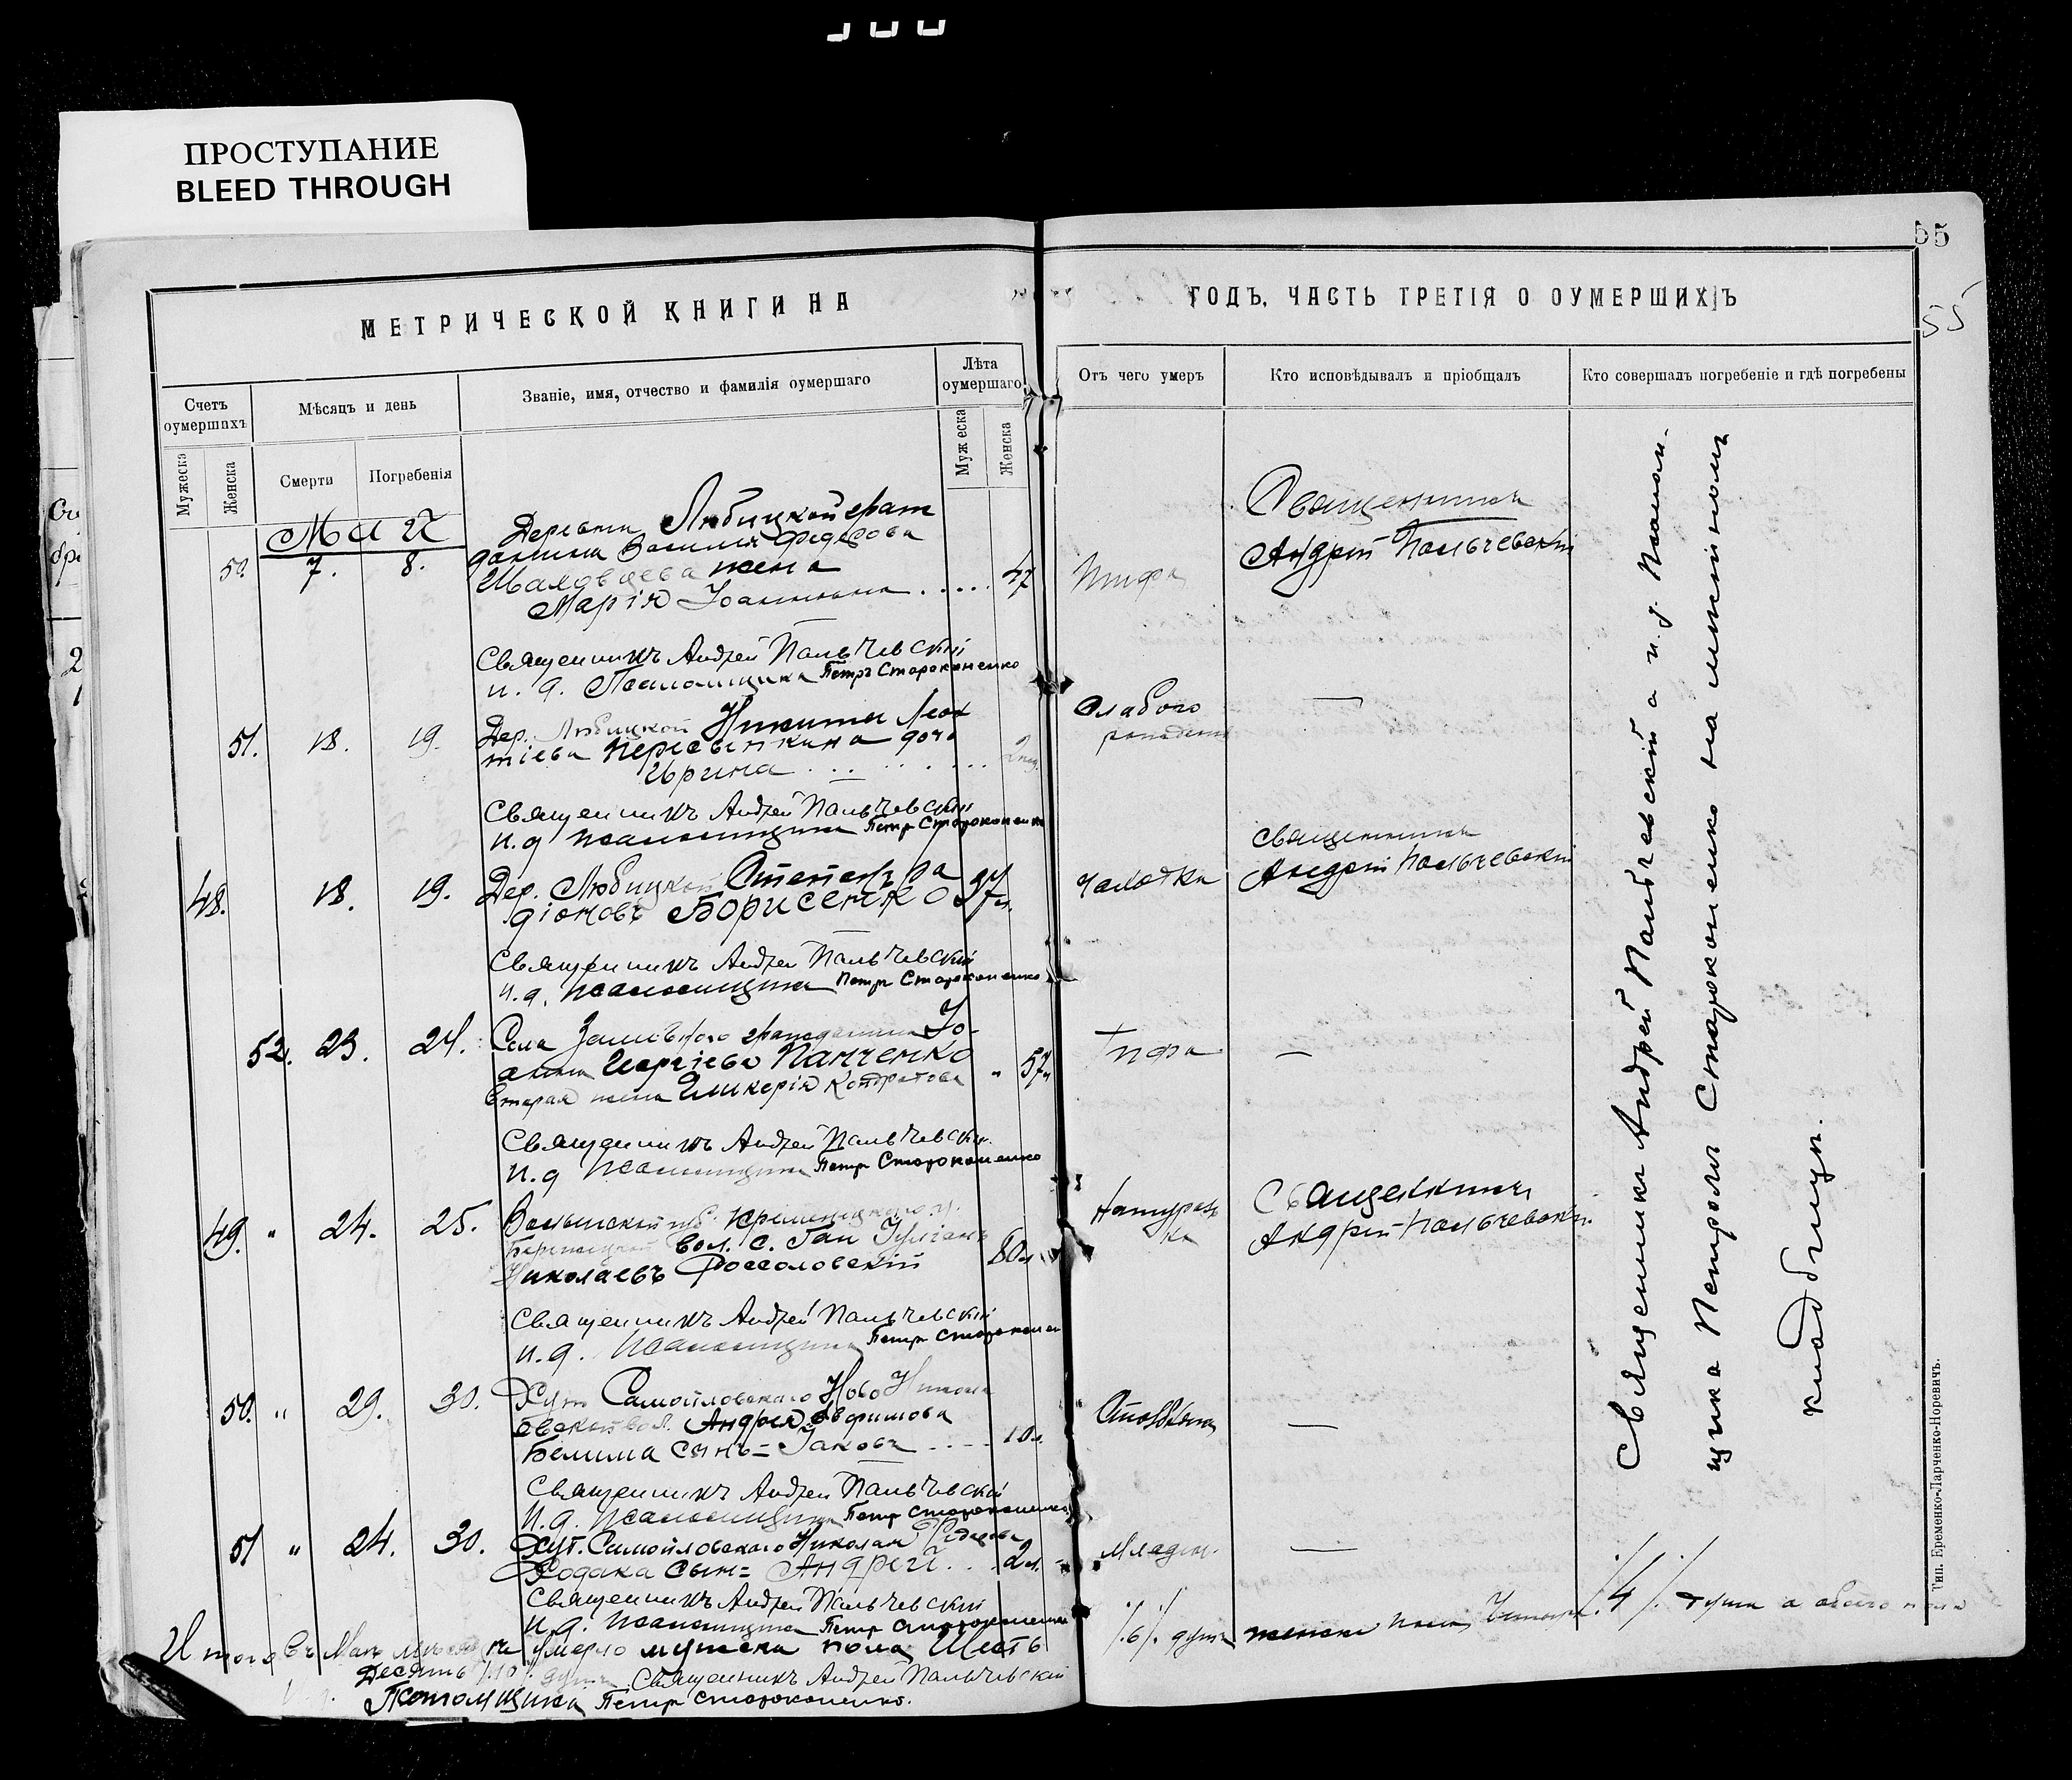 ПРОСТУПАНИЕ
BLEED THROUGH
55
55
МЕТРИЧЕСКОЙ КНИГИ НА
ГОДЪ, ЧАСТЬ ТРЕТІЯ О ОУМЕРШИХЪ
Счетъ оумершихъ
Мѣсяцъ и день
Званіе, имя, отчество и фамилія оумершаго
Лѣта оумершаго
Отъ чего умеръ
Кто исповѣдывалъ и пріобщалъ
Кто совершалъ погребеніе и гдѣ погребены
Мужеска
Женска
Смерти
Погребенія
Мужеска
Женска
Деревни Любицкой граж
данина Василия Федорова
50. 7. 8.
жена
Марія Іоаннова 47
Тифа
Священникъ
Андрей Пальчевскій
Священникъ Андрей Пальчевскій
и. д. Псаломщика Петръ Староконенко
51. 18. 19.
Дер. Любицкой Никиты Леон
тіева Пересыпкина дочь
Ирина 2 нед.
Слабого
рожденія
—
Священникъ Андрей Пальчевскій
и. д. Псаломщика Петръ Староконенко
48. 18. 19.
Дер. Любицкой Стефанъ Ра
діоновъ Борисенко 37 л.
Чахотки
Священникъ
Андрей Пальчевскій
Священникъ Андрей Пальчевскій
и. д. Псаломщика Петръ Староконенко
52. 23. 24.
Села гражданина Іо-
анна Георгіева Панченко
Вторая жена Гликерія Кондратова " 57 л.
Тифа
—
Священникъ Андрей Пальчевскій
и. д. Псаломщика Петръ Староконенко
49. " 24. 25.
Волынской губ. Кременецкаго у.
вол. с.
Николаевъ Россоловскій 80 л.
Натураль
но
Священникъ
Андрей Пальчевскій
Священникъ Андрей Пальчевскій
и. д. Псаломщика Петръ Староконен
50. " 29. 30.
Хут. Самойловскаго Ново Никола
евской вол. Андрея Ефимова
Белима сынъ = Іаковъ 10 л.
—
Священникъ Андрей Пальчевскій
и. д. Псаломщика Петръ Староконенко
51 " 24. 30.
Хут. Самойловскаго Николая Федорова
Ходака сынъ = Андрей 2 м.
Младен.
—
Священникъ Андрей Пальчевскій
и. д. Псаломщика Петръ Староконенко
Итого въ Маѣ мѣсяцѣ умерло мужеска пола Шесть /6/ душъ женска пола четыре /4/ душъ а обоего пола
Десять /10/ душъ. Священникъ Андрей Пальчевскій
Псаломщика Петръ Староконенко.
Священникъ Андрей Пальчевскій а и. д. Псалом-
щика Петромъ Староконенко на мѣстномъ
кладбищѣ.
Тип. Еременко-Ларченко-Норевичъ.